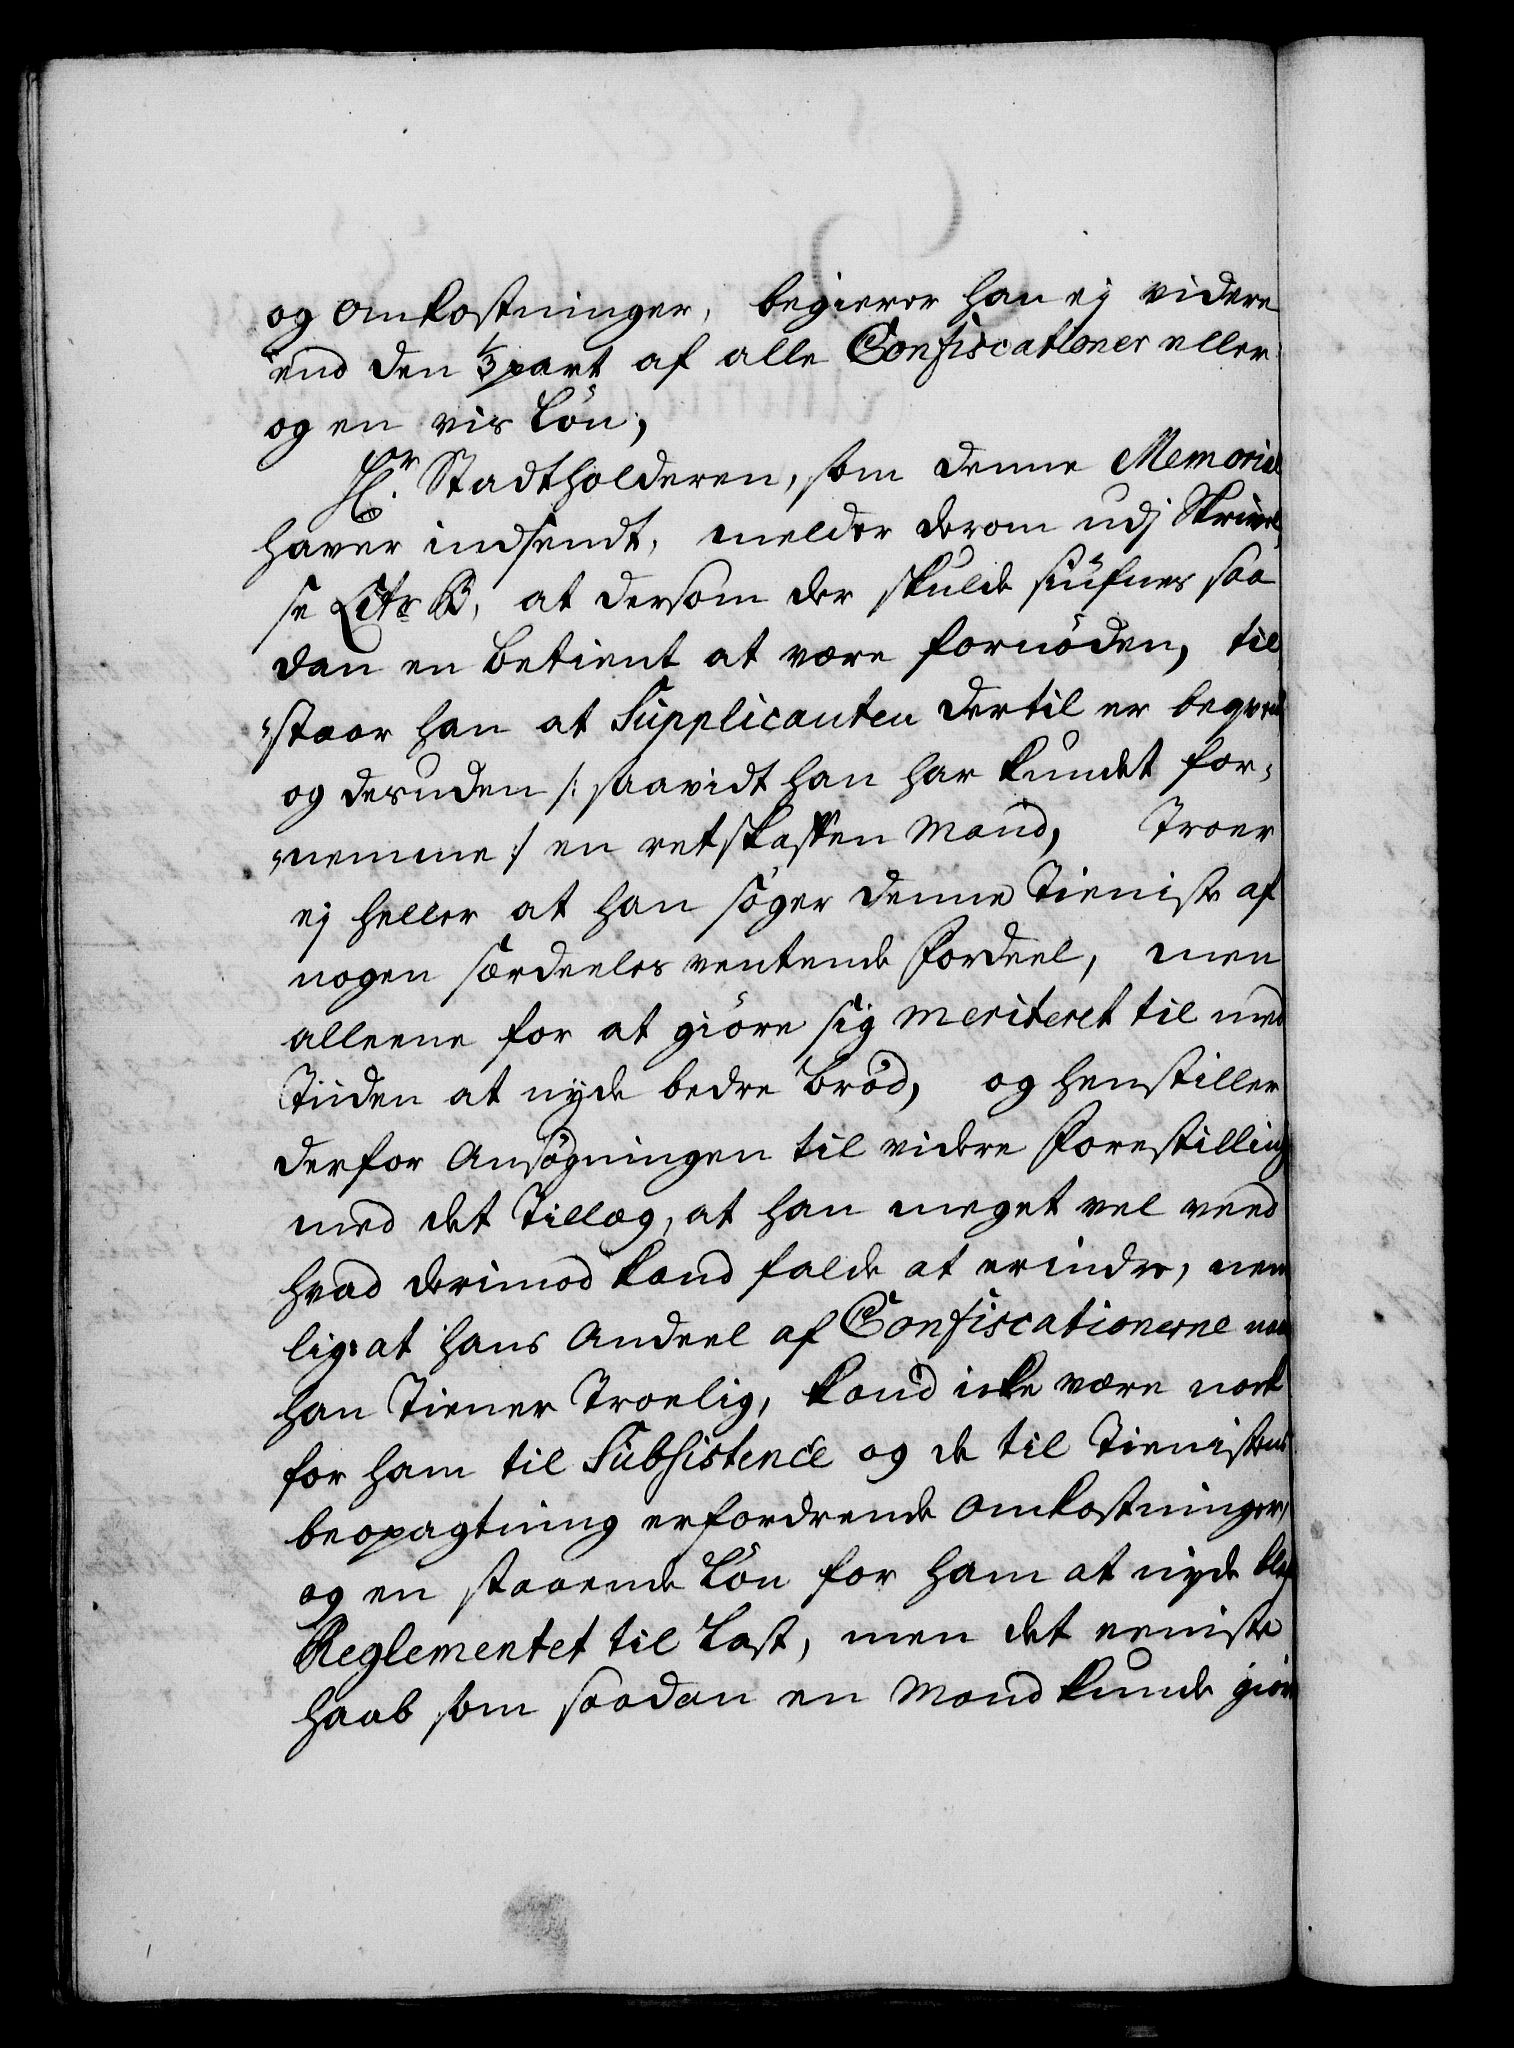 og omkostninger, begierer han ej videre
end den 1/3 part af alle Confiscationer eller
og en vis Løn,
Hr. Stadtholderen, som denne Memorial
haver indsendt, melder derom udj Skrivel,
se Litr B, at dersom der skulde siufnes saa
dan en betient at være fornöden, til
staar han at Supplicanten dertil er beqvem
og desuden /: saavidt han har kundet for-
nemme :/ en retskaffen Mand, Troer
ej heller at han söger denne Tieniste af
nogen særdeeles ventende Fordeel, men
alleene for at giöre sig meriteret til med
Tiiden at nyde bedre Bröd, og henstiller
derfor Ansögningen til videre Forestilling
med det Tillæg, at han meget vel veed
hvad derimod kand falde at erindre, nem
lig: at hans Andeel af Confiscationerne naar
han Tiener Troelig, kand icke være nock
for ham til Subsistence og de til Tienistens
beopagtning erfordrende omkostninger,
og en staaende Lön for ham at nyde blev
Reglementet til Last, men det eeniste
Haab som saadan en Mand kunde giöre